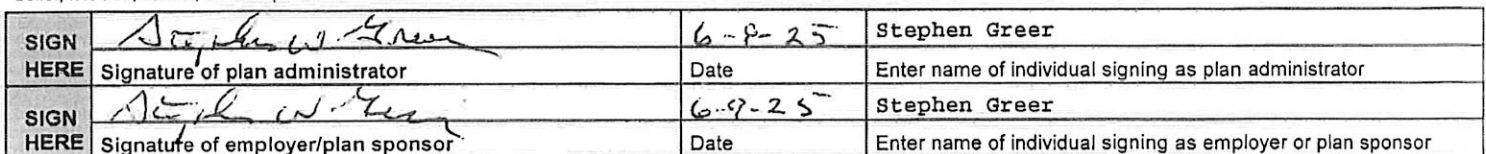 SIGN HERE Stephen W. Greer 6-9-25 Stephen Greer
Signature of plan administrator Date Enter name of individual signing as plan administrator
SIGN HERE Stephen W Greer 6-9-25 Stephen Greer
Signature of employer/plan sponsor Date Enter name of individual signing as employer or plan sponsor